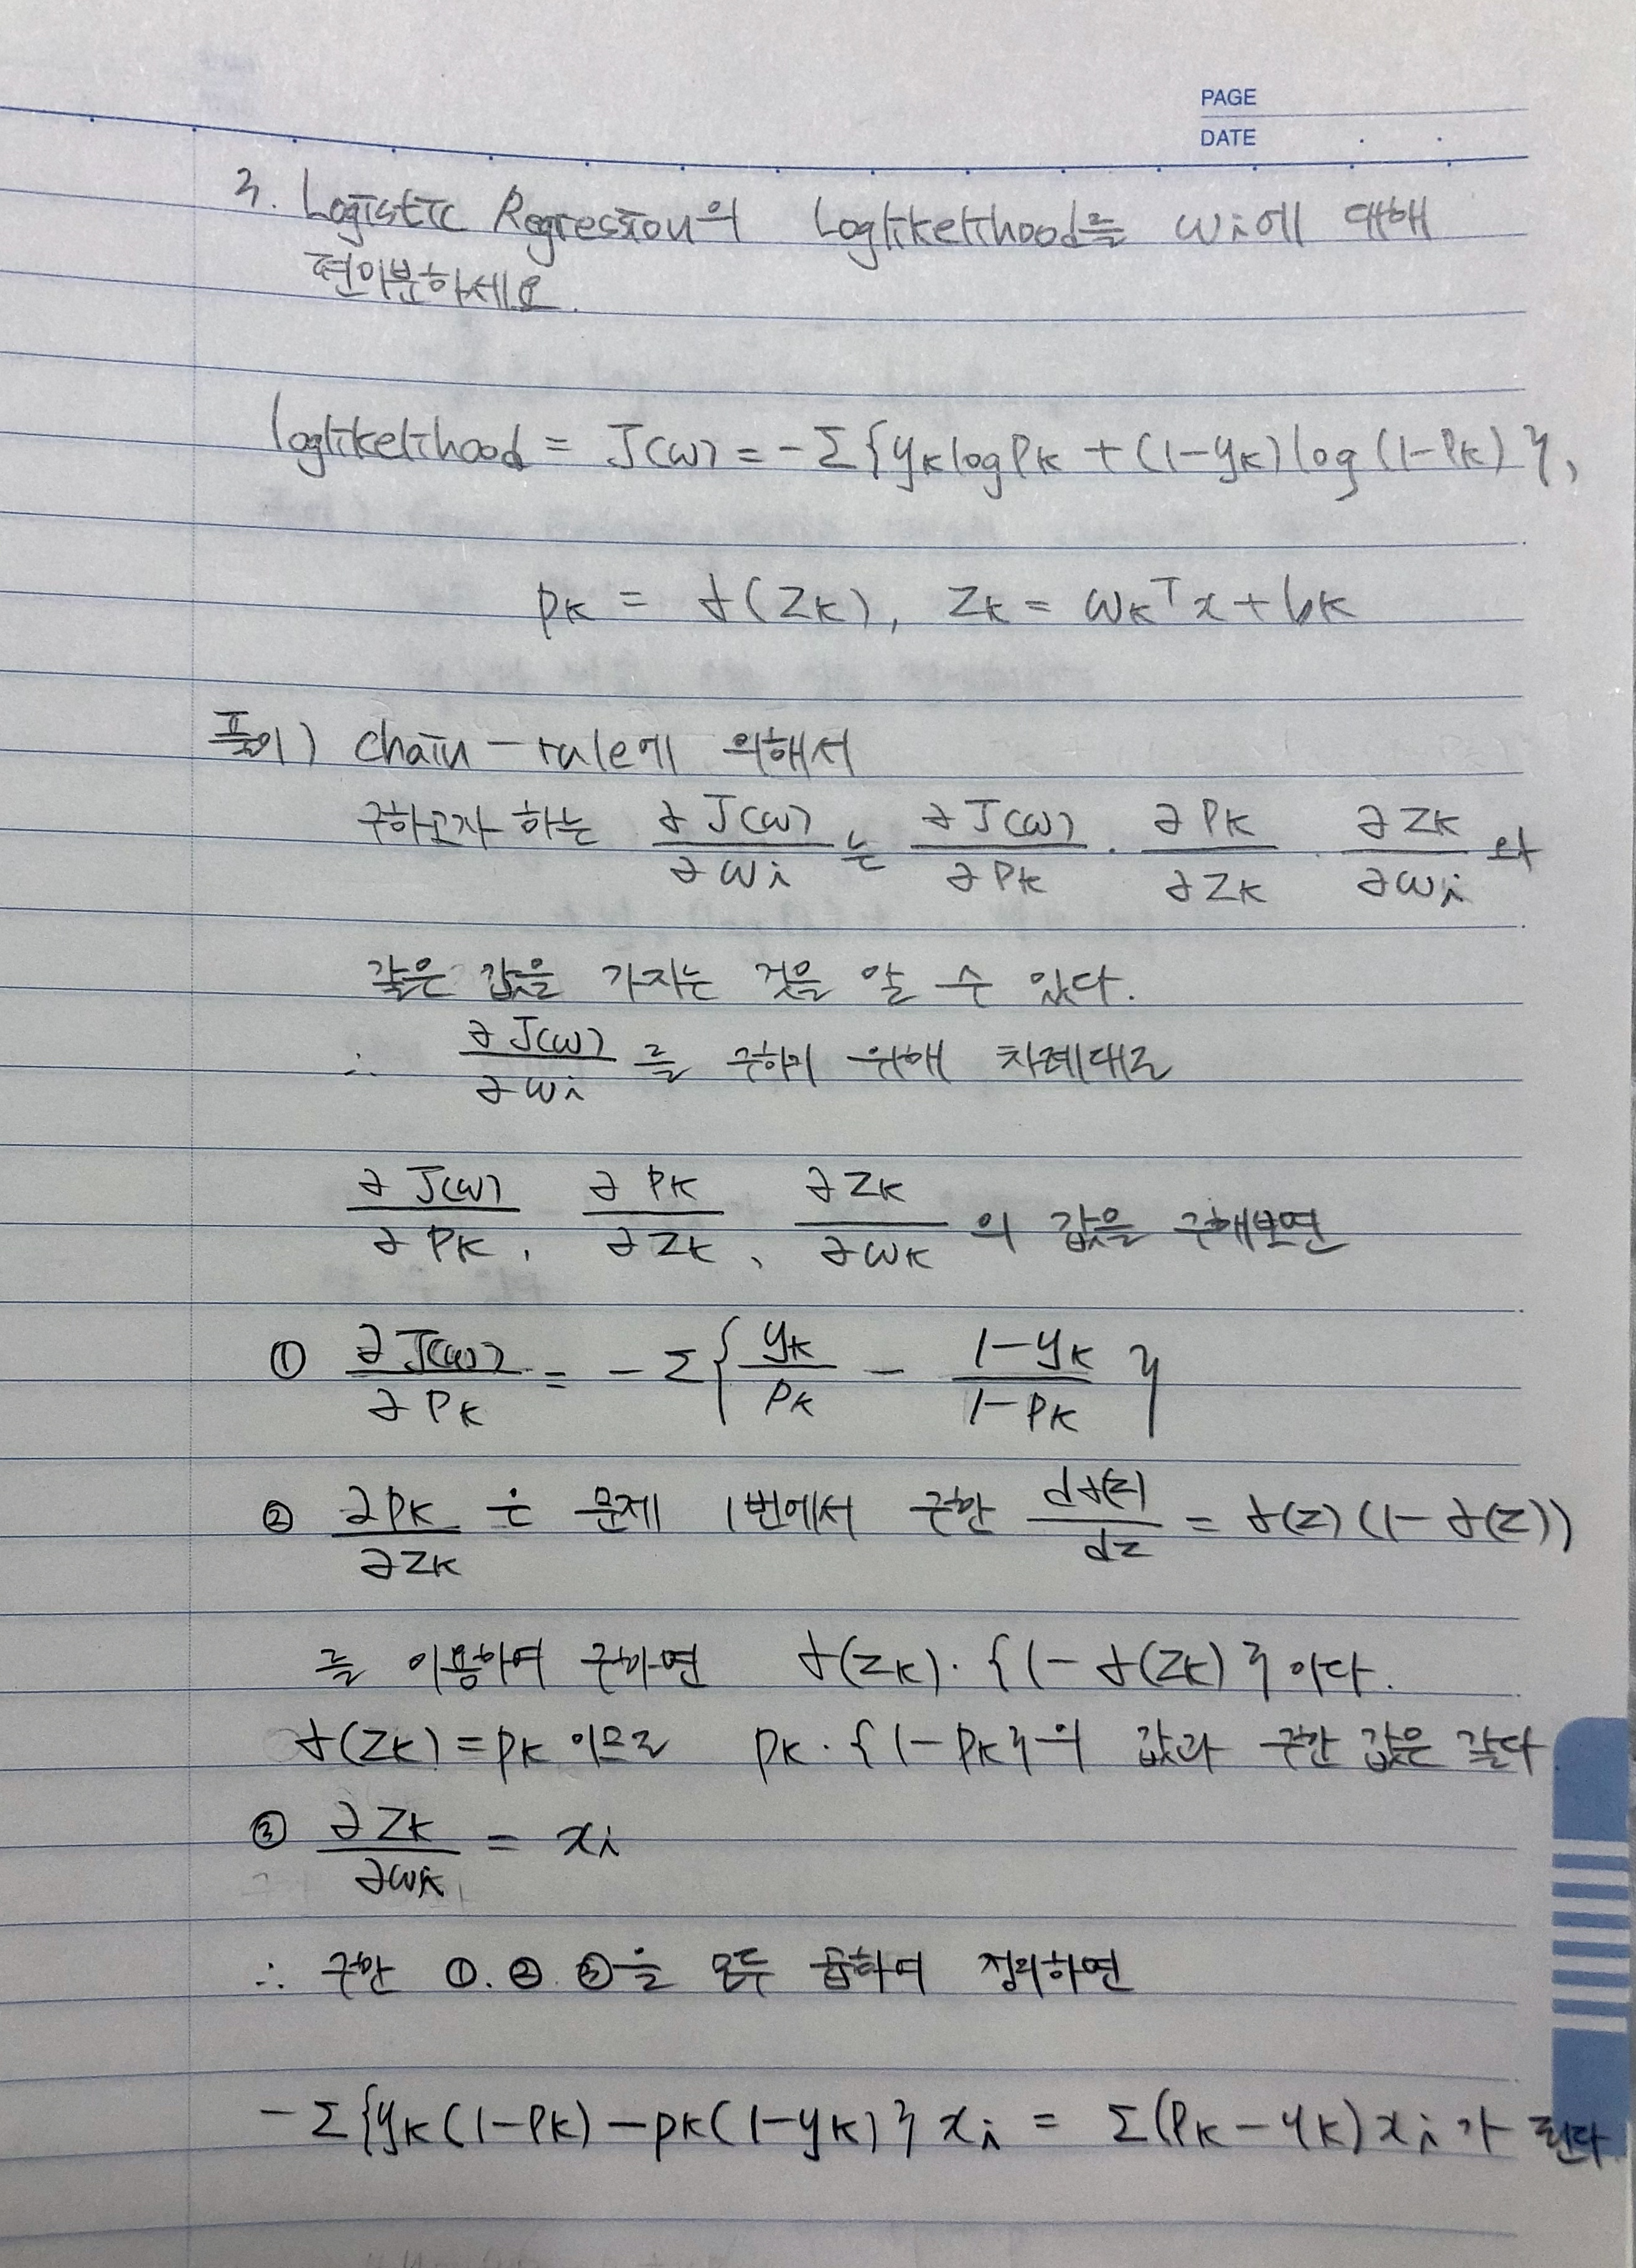 PAGE
DATE
3. Logistic Regression의 Loglikelihood를 wi에 대해
편미분하세요.
loglikelihood = J(w) = -Σ{yk log Pk + (1-yk) log (1-Pk)},
pk = σ(zk), zk = wkᵀx + bk
풀이) chain-rule에 의해서
구하고자 하는 ∂J(w)/∂wi 는 ∂J(w)/∂Pk · ∂Pk/∂zk · ∂zk/∂wi 와
같은 값을 가지는 것을 알 수 있다.
∴ ∂J(w)/∂wi 를 구하기 위해 차례대로
∂J(w)/∂Pk, ∂Pk/∂zk, ∂zk/∂wk 의 값을 구해보면
① ∂J(w)/∂Pk = -Σ{yk/pk - (1-yk)/(1-pk)}
② ∂Pk/∂zk 는 문제 1번에서 구한 dσ(z)/dz = σ(z)(1-σ(z))
를 이용하여 구하면 σ(zk)·{1-σ(zk)}이다.
σ(zk)=pk 이므로 pk·{1-pk}의 값과 구한 값은 같다
③ ∂zk/∂wk = xi
∴ 구한 ①.②.③을 모두 곱하여 정리하면
-Σ{yk(1-Pk)-pk(1-yk)}xi = Σ(Pk-yk)xi가 된다